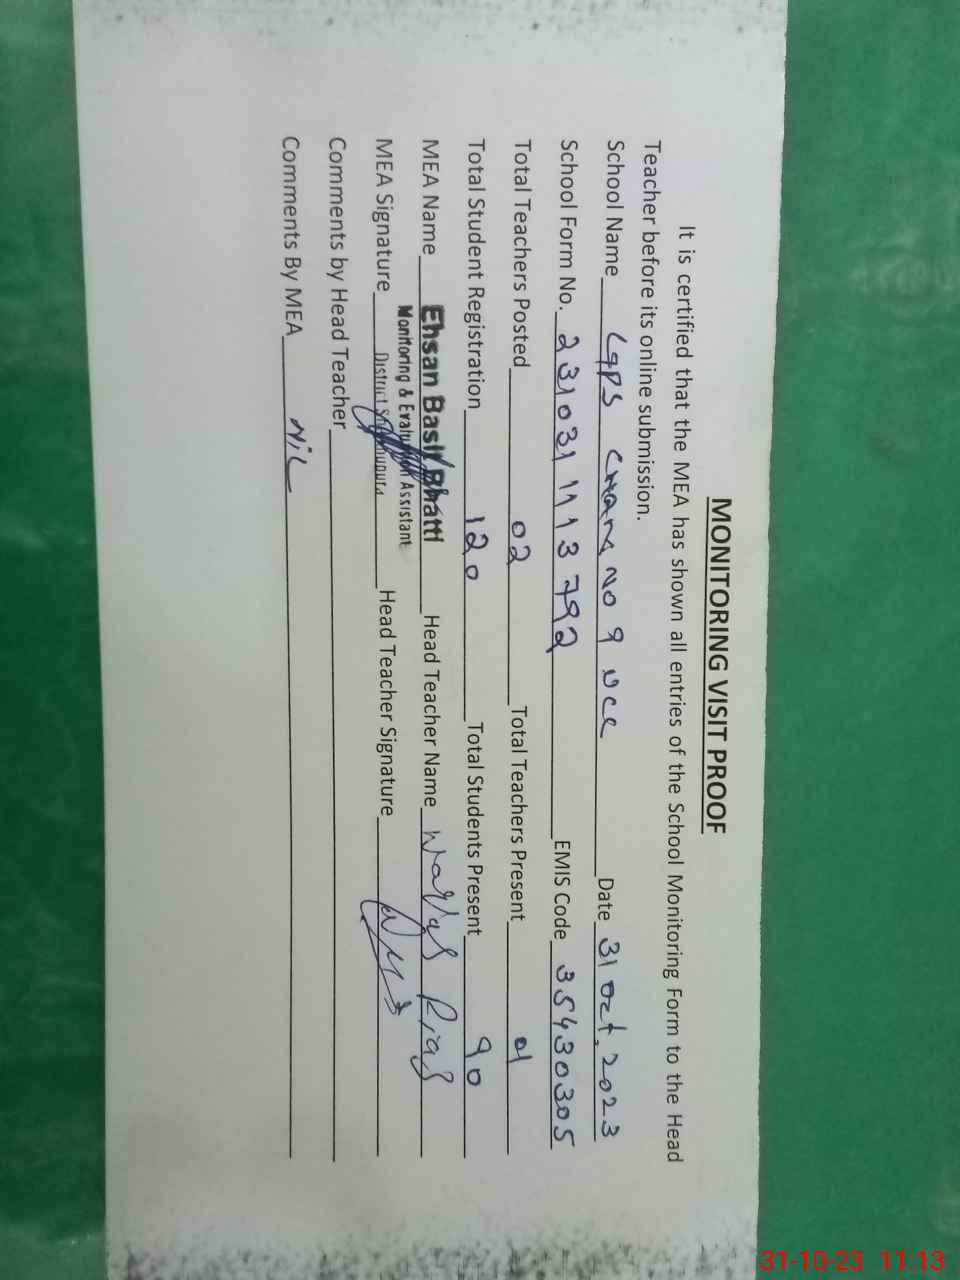 MONITORING VISIT PROOF
It is certified that the MEA has shown all entries of the School Monitoring Form to the Head
Teacher before its online submission.
School Name GPS No 9 Date 31 Oct, 2023
School Form No. 2310311113792 EMIS Code 35430305
Total Teachers Posted 02 Total Teachers Present 01
Total Student Registration 120 Total Students Present 90
MEA Name Ehsan Basir Bhatti Head Teacher Name
Monitoring & Evaluation Assistant
MEA Signature District Head Teacher Signature
Comments by Head Teacher
Comments By MEA Nil
31-10-23 11:13